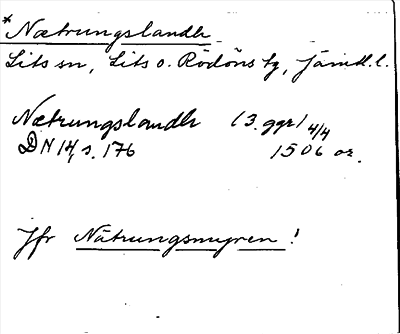 *Nætrungslandh
Lits sn, Lits o. Rödöns tg, Jämtl. l.
Nætrungslandh (3 ggr) 4/4
DN 14, s. 176 1506 or.
Jfr Nätrungsmyren!